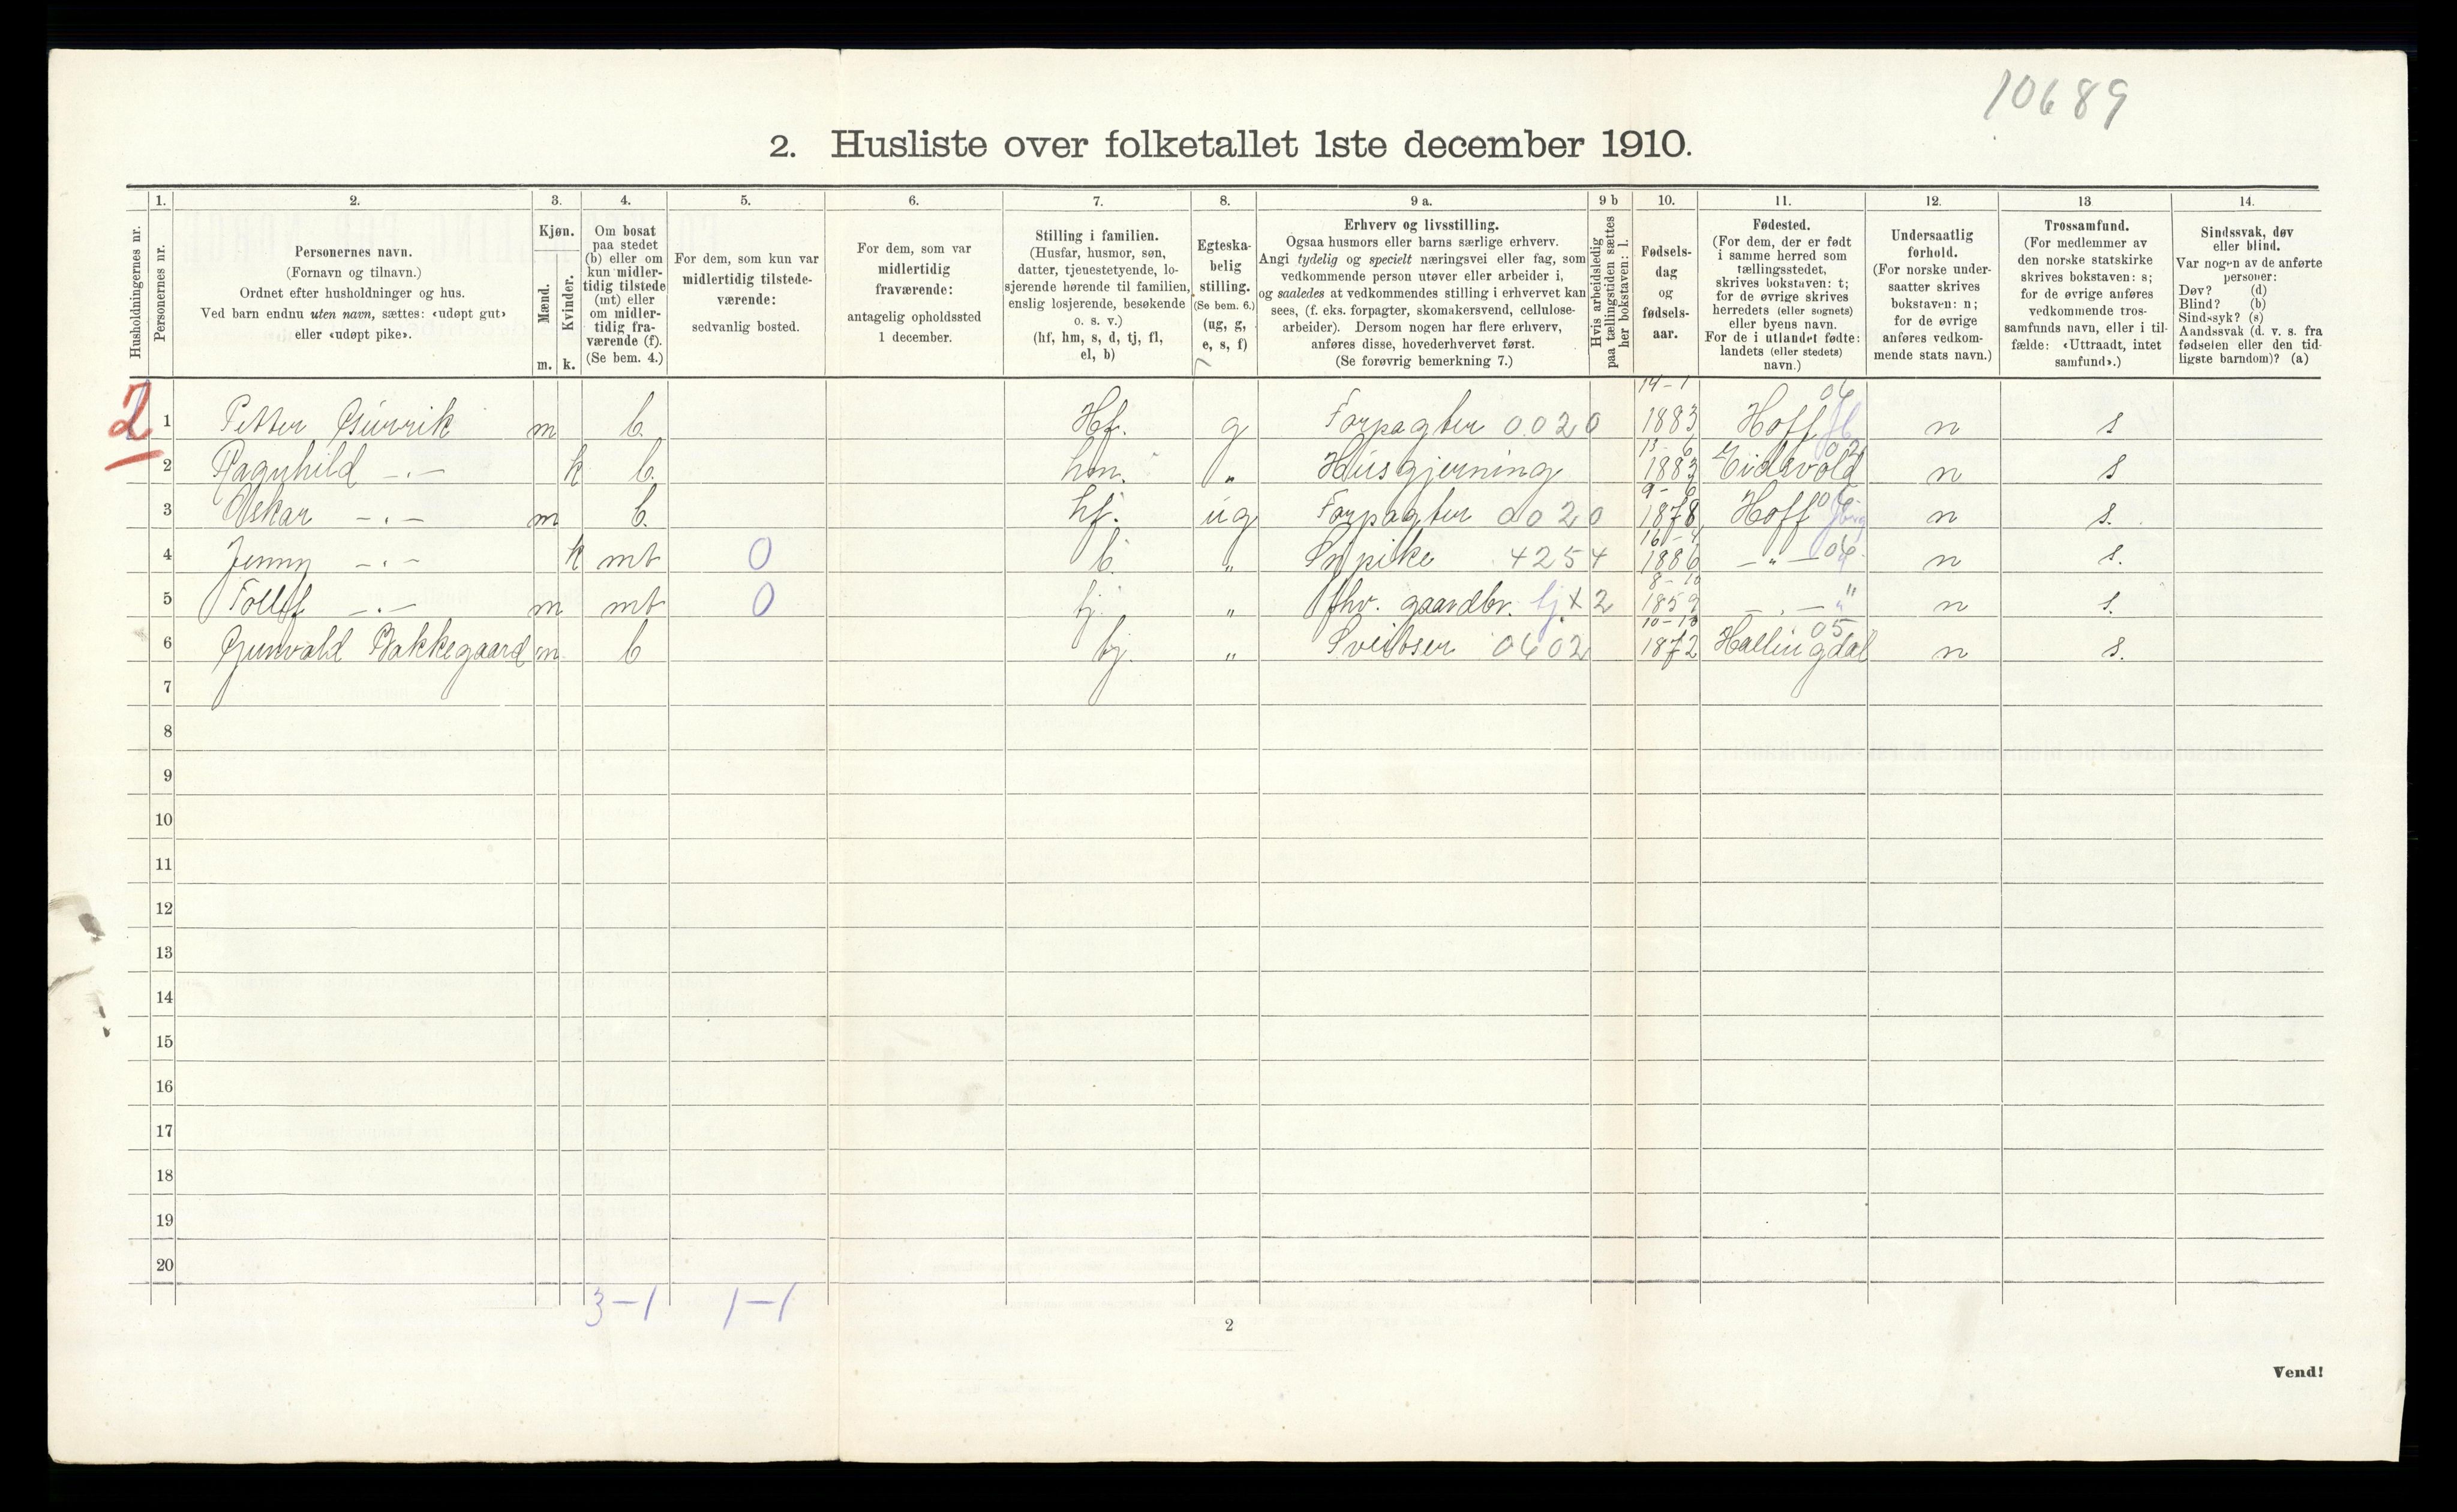 10689
2. Husliste over folketallet 1ste december 1910.
1. 2. 3. 4. 5. 6. 7. 8. 9 a. 9 b 10. 11. 12. 13 14.
Husholdningernes nr.
Personernes nr.
Personernes navn.
(Fornavn og tilnavn.)
Ordnet efter husholdninger og hus.
Ved barn endnu uten navn, sættes: «udøpt gut»
eller «udøpt pike».
Kjøn.
Mænd.
Kvinder.
m. k.
Om bosat
paa stedet
(b) eller om
kun midler-
tidig tilstede
(mt) eller
om midler-
tidig fra-
værende (f).
(Se bem. 4.)
For dem, som kun var
midlertidig tilstede-
værende:
sedvanlig bosted.
For dem, som var
midlertidig
fraværende:
antagelig opholdssted
1 december.
Stilling i familien.
(Husfar, husmor, søn,
datter, tjenestetyende, lo-
sjerende hørende til familien,
enslig losjerende, besøkende
o. s. v.)
(hf, hm, s, d, tj, fl,
el, b)
Egteska-
belig
stilling.
(Se bem. 6.)
(ug, g,
e, s, f)
Erhverv og livsstilling.
Ogsaa husmors eller barns særlige erhverv.
Angi tydelig og specielt næringsvei eller fag, som
vedkommende person utøver eller arbeider i,
og saaledes at vedkommendes stilling i erhvervet kan
sees, (f. eks. forpagter, skomakersvend, cellulose-
arbeider). Dersom nogen har flere erhverv,
anføres disse, hovederhvervet først.
(Se forøvrig bemerkning 7.)
Hvis arbeidsledig
paa tællingstiden sættes
her bokstaven: l.
Fødsels-
dag
og
fødsels-
aar.
Fødested.
(For dem, der er født
i samme herred som
tællingsstedet,
skrives bokstaven: t;
for de øvrige skrives
herredets (eller sognets)
eller byens navn.
For de i utlandet fødte:
landets (eller stedets)
navn.)
Undersaatlig
forhold.
(For norske under-
saatter skrives
bokstaven: n;
for de øvrige
anføres vedkom-
mende stats navn.)
Trossamfund.
(For medlemmer av
den norske statskirke
skrives bokstaven: s;
for de øvrige anføres
vedkommende tros-
samfunds navn, eller i til-
fælde: «Uttraadt, intet
samfund».)
Sindssvak, døv
eller blind.
Var nogen av de anførte
personer:
Døv? (d)
Blind? (b)
Sindssyk? (s)
Aandssvak (d. v. s. fra
fødselen eller den tid-
ligste barndom)? (a)
2 1 Petter m b. Hf. g Forpagter 0.020 14-1 1883 Hoff 06 n s
2 Ragnhild -.- k b. hm. " Husgjerning 1883 Eidsvold 02 n s
3 Oskar -.- m b. hf. ug Forpagter 0020 9-6 1878 Hoff 06 n s.
4 Jenny -.- k mt 0 b. " 4254 1886 -"- 06 n s.
5 -.- m mt 0 " fhv. gaardbr. x2 1859 -.- " n s.
6 Gunvald Bakkegaard m b tj. " Sveitser 0602 1872 Hallingdal 05 n s.
7
8
9
10
11
12
13
14
15
16
17
18
19
20
3-1 1-1
2
Vend!